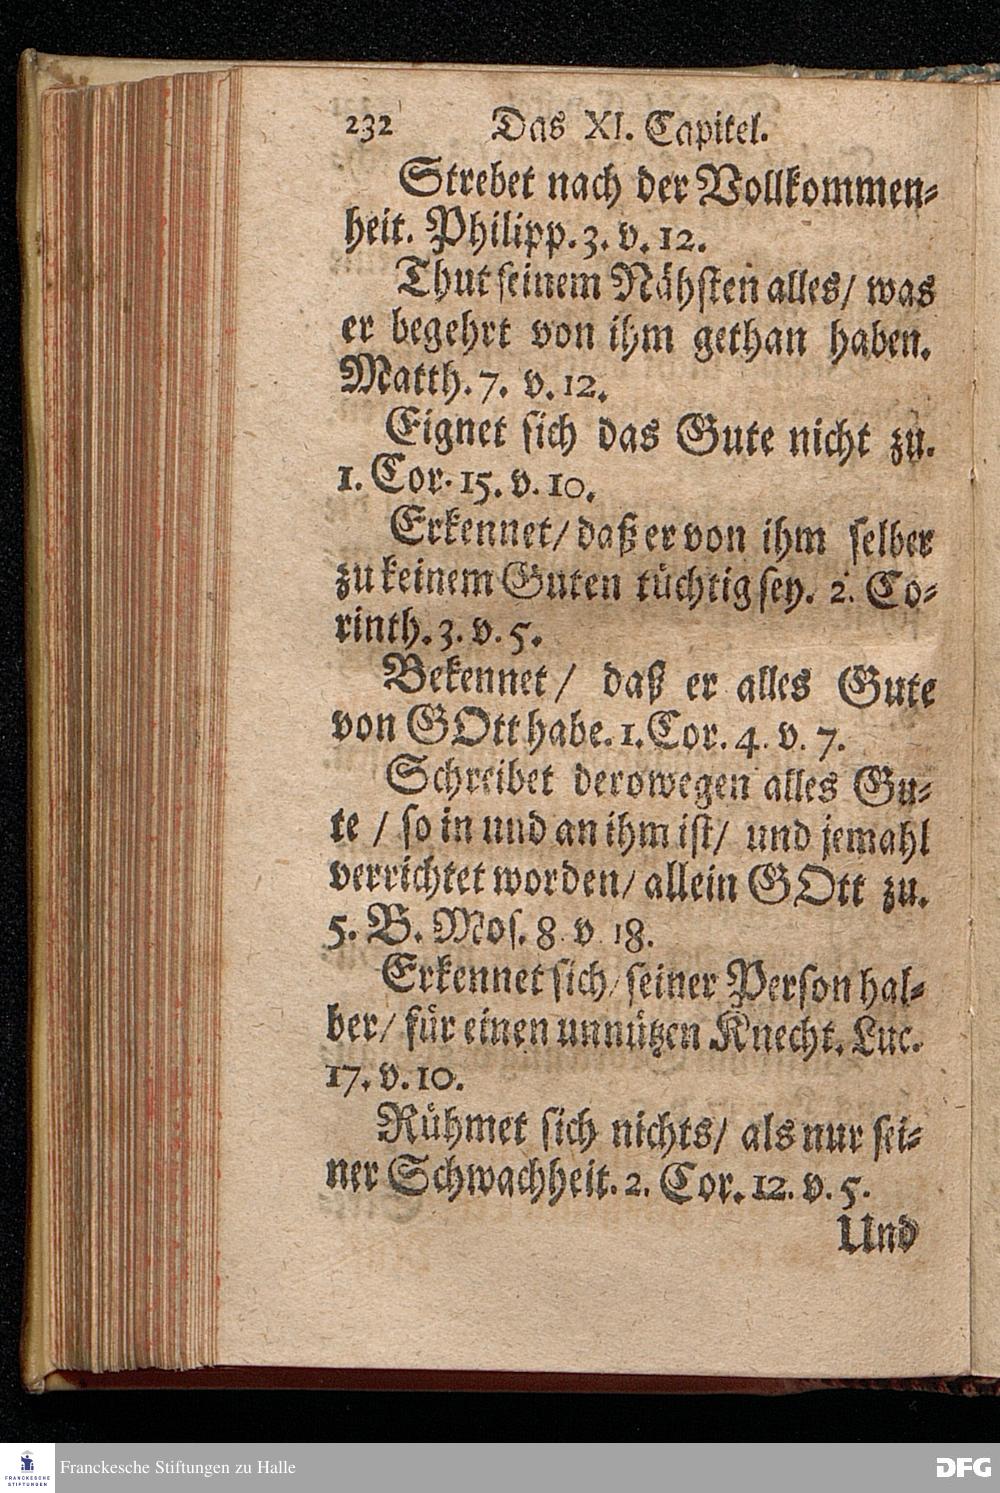 232 Das XI. Capitel.
Strebet nach der Vollkommen-
heit. Philipp. 3. v. 12.
Thut seinem Nähsten alles/ was
er begehrt von ihm gethan haben.
Matth. 7. v. 12.
Eignet sich das Gute nicht zu.
1. Cor. 15. v. 10.
Erkennet/ daß er von ihm selber
zu keinem Guten tüchtig sey. 2. Co-
rinth. 3. v. 5.
Bekennet/ daß er alles Gute
von GOtt habe. 1. Cor. 4. v. 7.
Schreibet derowegen alles Gu-
te / so in und an ihm ist/ und jemahl
verrichtet worden/ allein GOtt zu.
5. B. Mos. 8. v. 18.
Erkennet sich/ seiner Person hal-
ber/ für einen unnützen Knecht. Luc.
17. v. 10.
Rühmet sich nichts/ als nur sei-
ner Schwachheit. 2. Cor. 12. v. 5.
Und
FRANCKESCHE
STIFTUNGEN
Franckesche Stiftungen zu Halle
DFG